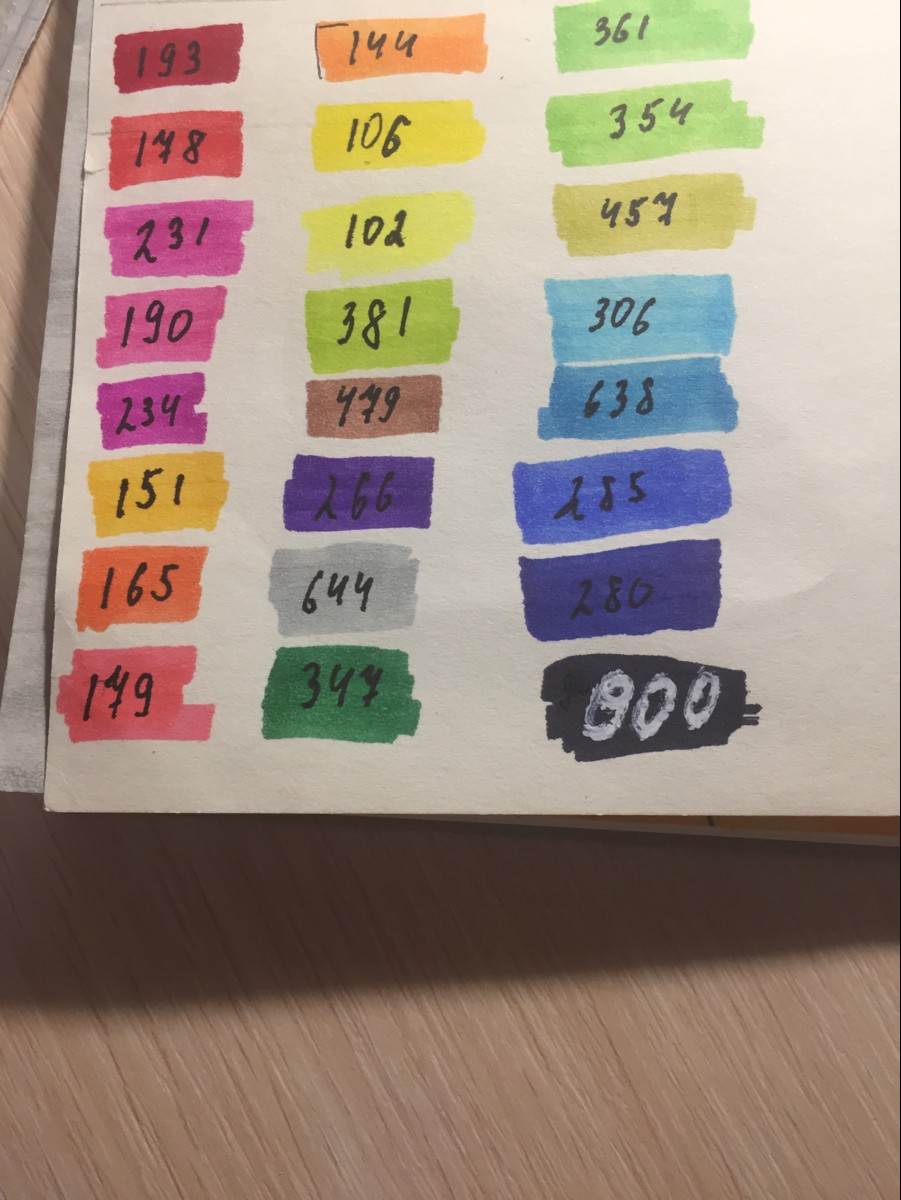 193 144 361
178 106 354
231 102 457
190 381 306
234 479 638
151 266 285
165 644 280
179 347 800